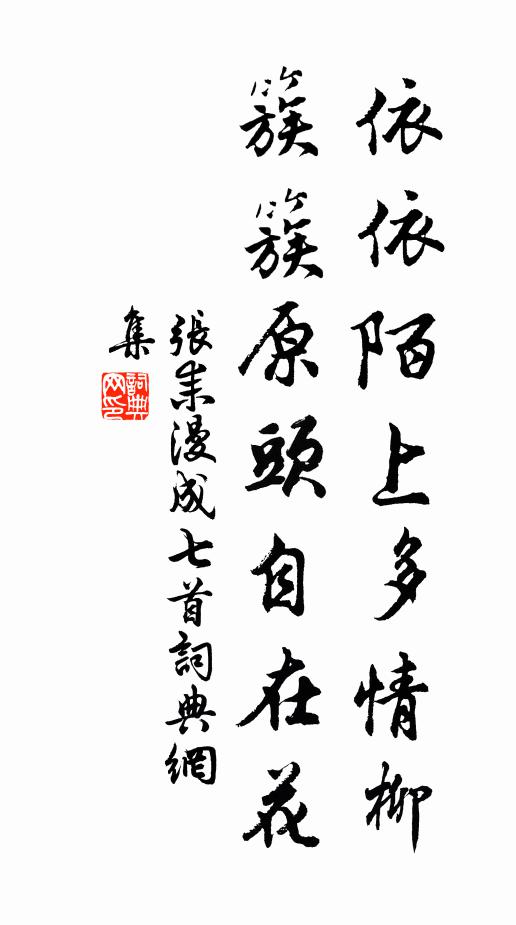 依依陌上多情柳
簇簇原頭自在花
張耒漫成七首詞典網
集
詞典
网印